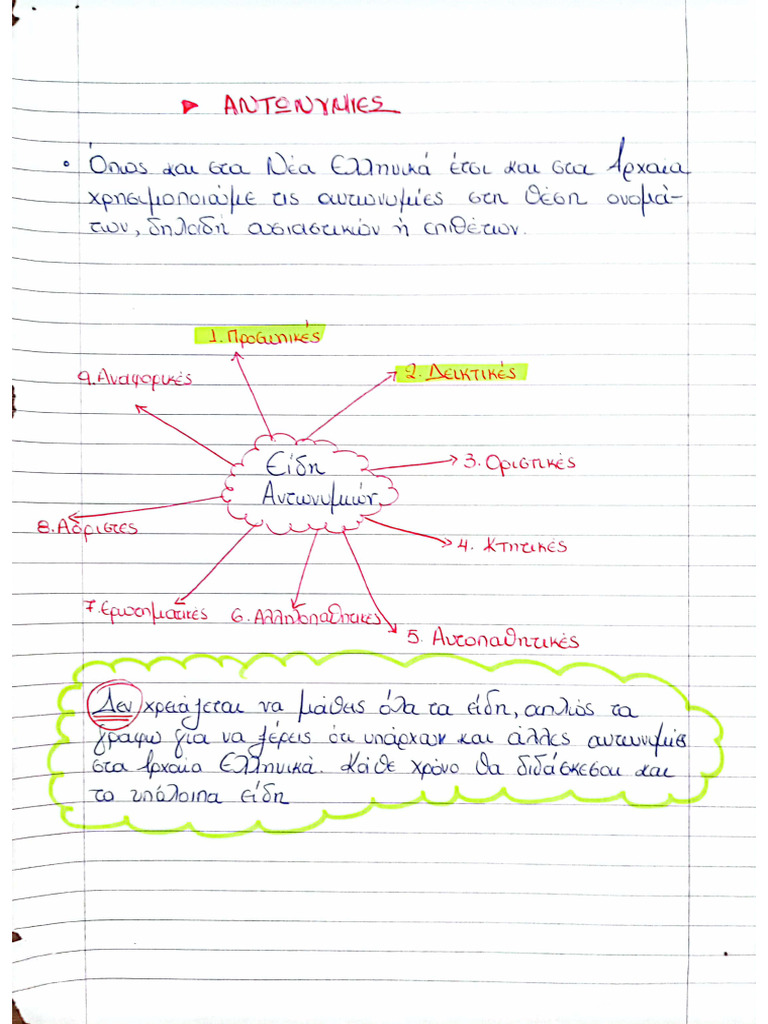 ▸ ΑΝΤΩΝΥΜΙΕΣ
• Όπως και στα Νέα Ελληνικά έτσι και στα Αρχαία
χρησιμοποιούμε τις αντωνυμίες στη θέση ονομά-
των, δηλαδή ουσιαστικών ή επιθέτων.
1. Προσωπικές
2. Δεικτικές
9. Αναφορικές
3. Οριστικές
Είδη
Αντωνυμιών
8. Αόριστες
4. Κτητικές
7. Ερωτηματικές
6. Αλληλοπαθητικές
5. Αυτοπαθητικές
Δεν χρειάζεται να μάθεις όλα τα είδη, απλώς τα
γράφω για να ξέρεις ότι υπάρχουν και άλλες αντωνυμίες
στα Αρχαία Ελληνικά. Κάθε χρόνο θα διδάσκεσαι και
τα υπόλοιπα είδη